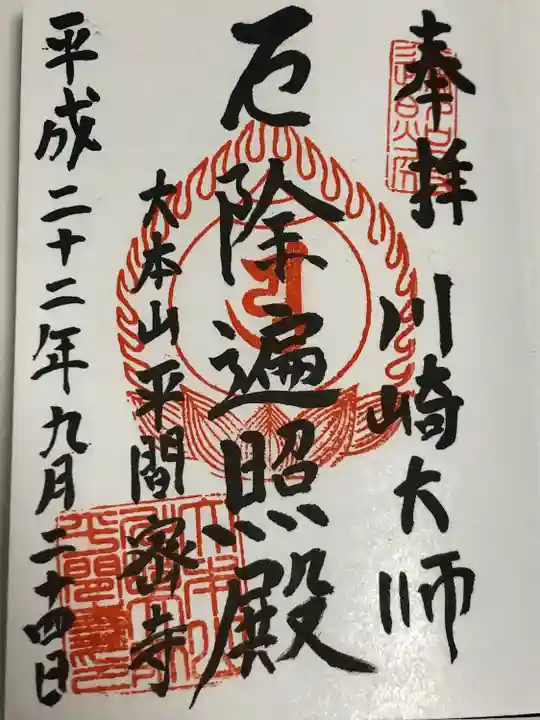 奉拝 川崎大師
厄除遍照殿
大本山平間密寺
平成二十二年九月二十四日